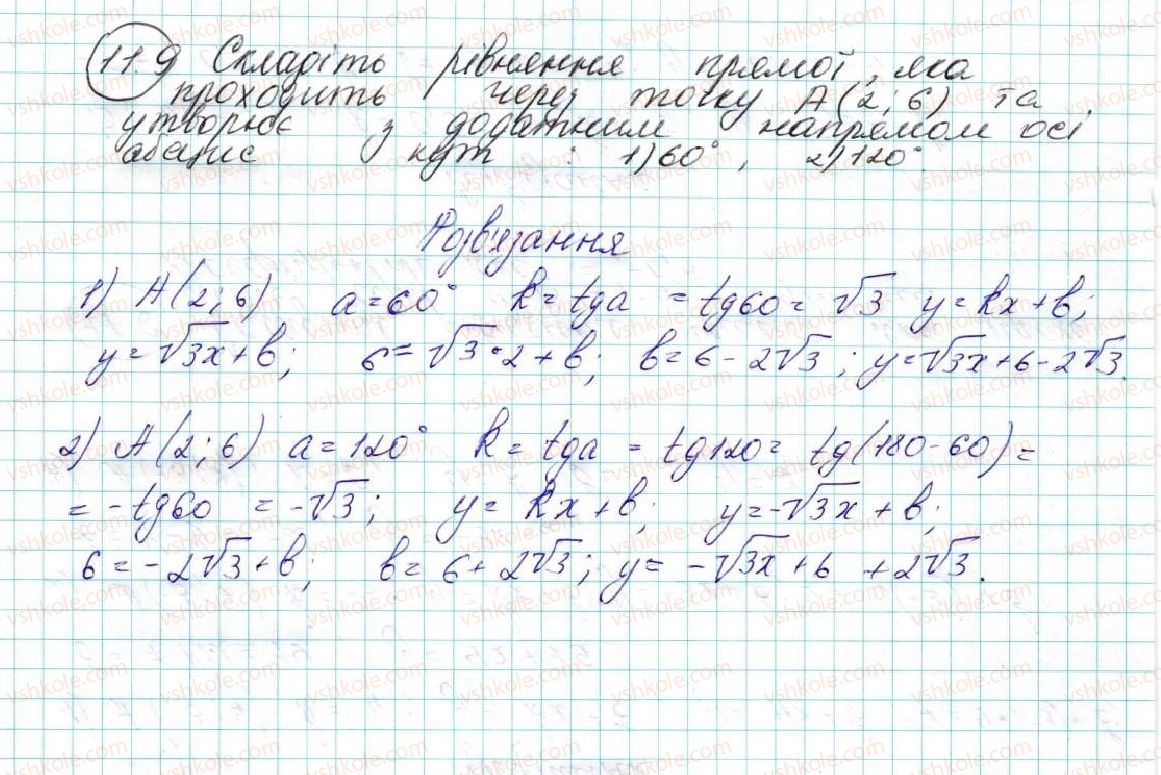 11.9 Складіть рівняння прямої, яка
проходить через точку A(2; 6) та
утворює з додатним напрямом осі
абсцис кут : 1) 60°, 2) 120°.
Розв'язання
1) A(2; 6) a = 60° k = tga = tg60 = √3 y = kx + b;
y = √3x + b; 6 = √3 · 2 + b; b = 6 - 2√3; y = √3x + 6 - 2√3.
2) A(2; 6) a = 120° k = tga = tg120 = tg(180 - 60) =
= -tg60 = -√3; y = kx + b; y = -√3x + b;
6 = -2√3 + b; b = 6 + 2√3; y = -√3x + 6 + 2√3.
vshkole.com